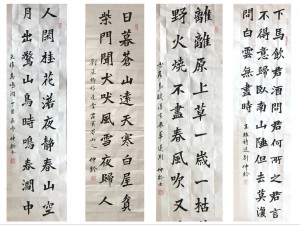 下馬飲君酒問君何所之君言
不得意歸臥南山陲但去莫復
問白雲無盡時
王維詩送別仲齡
離離原上草一歲一枯
野火燒不盡春風吹又
日暮蒼山遠天寒白屋貧
柴門聞犬吠風雪夜歸人
人閒桂花落夜靜春山空
月出驚山鳥時鳴春澗中